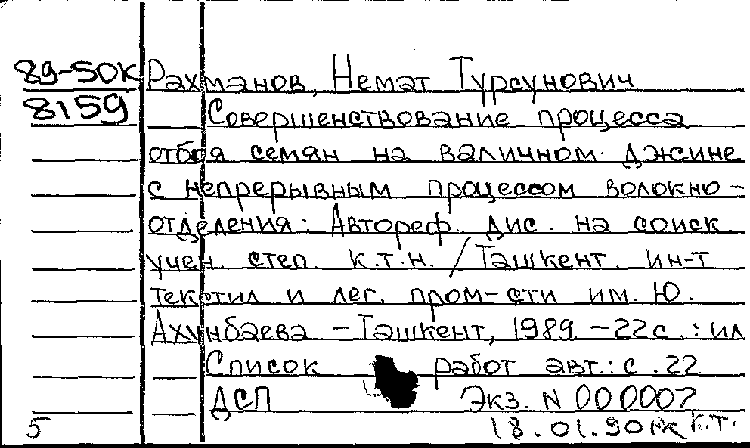 89-50К Рахманов, Немат Турсунович
8159 Совершенствование процесса
отбоя семян на валичном джине
с непрерывным процессом волокно-
отделения: Автореф. дис. на соиск
учен. степ. к.т.н. / Ташкент. ин-т
текстил и лег. пром-сти им. Ю.
Ахунбаева - Ташкент, 1989. - 22 с. : ил
Список работ авт.: с. 22
ДСП Экз. N 000007
5 18.01.90 к.т.